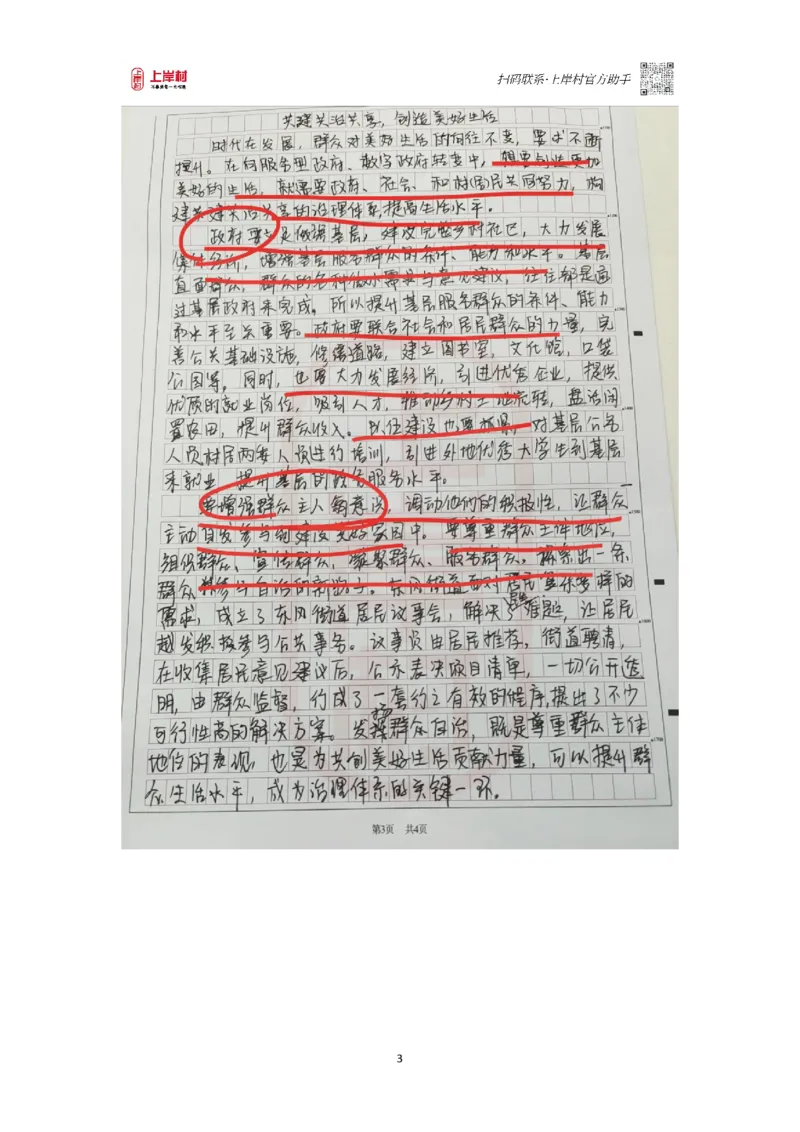 上岸村
扫码联系·上岸村官方助手
共建共治共享，创造美好生活
时代在发展，群众对美好生活的向往不变，要求不断
提升。在向服务型政府、数字政府转变中，想要创造更加
美好的生活，就需要政府、社会、和村(居)民共同努力，构
建共建共治共享的治理体系，提高生活水平。
政府要立足做强基层，建设完善乡村社区，大力发展
集体经济，增强基层服务群众的条件、能力和水平。基层
直面群众，群众的各种微小需求与意见建议，往往都是通
过基层政府来完成，所以提升基层服务群众的条件、能力
和水平至关重要。政府要联合社会和居民群众的力量，完
善公共基础设施，修缮道路，建立图书室，文化馆，口袋
公园等，同时，也要大力发展经济，引进优秀企业，提供
优质的就业岗位，吸引人才，推动乡村土地流转，盘活闲
置农田，提升群众收入。队伍建设也要抓紧，对基层公务
人员村居两委人员进行培训，引进外地优秀大学生到基层
来就业，提升基层的政务服务水平。
要增强群众主人翁意识，调动他们的积极性，让群众
主动自发参与到建设美好家园中。要尊重群众主体地位，
组织群众、宣传群众，凝聚群众、服务群众。探索出一条
群众参与自治的新路子。东风街道面对居民多种多样的
需求，成立了东风街道居民议事会，解决了难题，让居民
越发积极参与公共事务。议事员由居民推荐，街道聘请，
在收集居民意见建议后，公示表决项目清单，一切公开透
明，由群众监督，约成了一套行之有效的程序，提出了不少
可行性高的解决方案。发挥群众自治，既是尊重群众主体
地位的表现，也是为共创美好生活贡献力量，可以提升群
众生活水平，成为治理体系的关键一环。
第3页 共4页
3